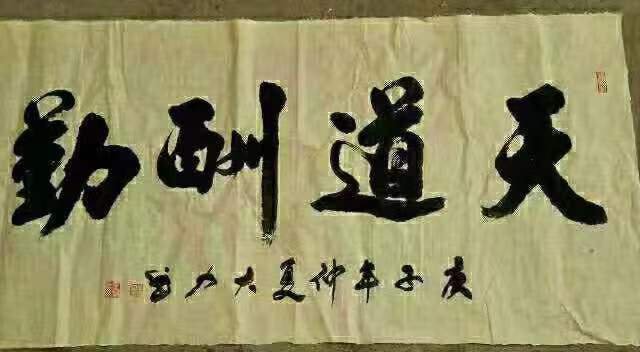 天道酬勤
庚子年仲夏大力书